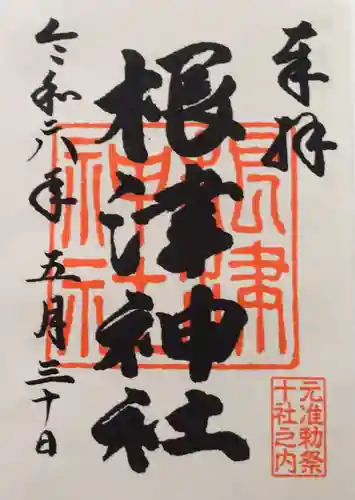 奉拝
根津神社
根津
神社
元准勅祭
十社之内
令和六年五月三十日